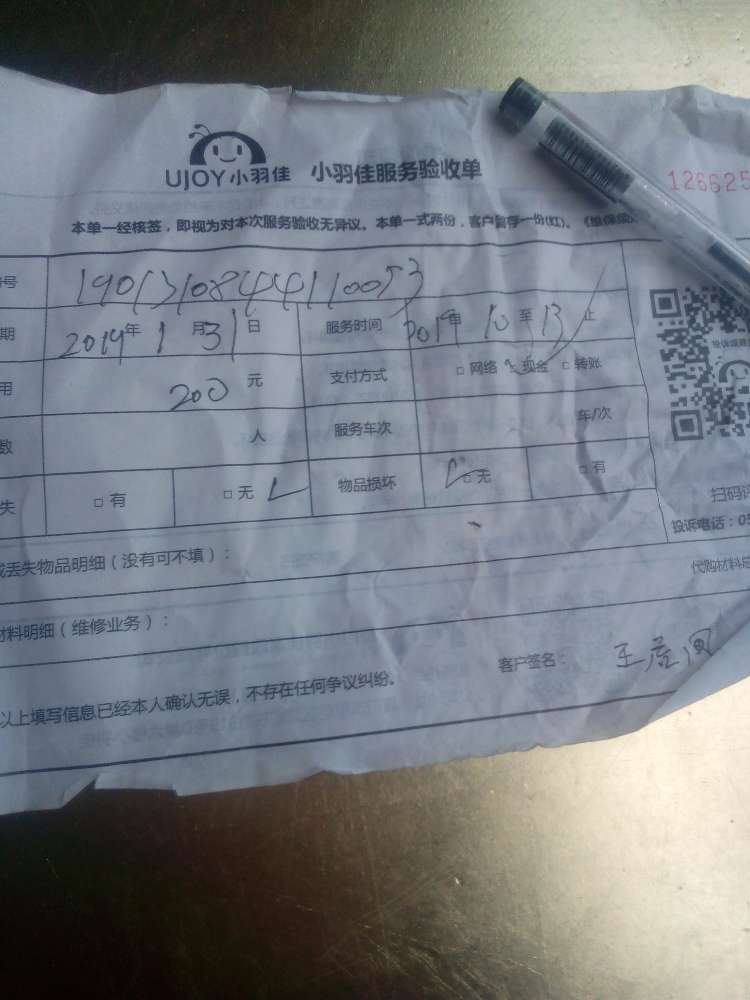 UJOY小羽佳 小羽佳服务验收单
126625
本单一经核签，即视为对本次服务验收无异议。本单一式两份，客户暂存一份(红)。
号 1901310844110053
期 2019年1月31日 服务时间 2019年 10至13止
用 200元 支付方式 □网络 □现金 □转账
数 人 服务车次 车/次
失 □有 □无 物品损坏 □无 □有
扫码
投诉电话：05
或丢失物品明细（没有可不填）：
代购材料
材料明细（维修业务）：
客户签名：王
以上填写信息已经本人确认无误，不存在任何争议纠纷。